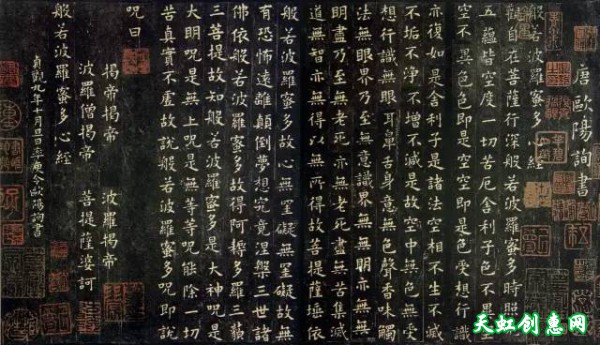 唐歐陽詢書
般若波羅蜜多心經
觀自在菩薩行深般若波羅蜜多時照見
五蘊皆空度一切苦厄舍利子色不異空
空不異色色即是空空即是色受想行識
亦復如是舍利子是諸法空相不生不滅
不垢不淨不增不減是故空中無色無受
想行識無眼耳鼻舌身意無色聲香味觸
法無眼界乃至無意識界無無明亦無無
明盡乃至無老死亦無老死盡無苦集滅
道無智亦無得以無所得故菩提薩埵依
般若波羅蜜多故心無罣礙無罣礙故無
有恐怖遠離顛倒夢想究竟涅槃三世諸
佛依般若波羅蜜多故得阿耨多羅三藐
三菩提故知般若波羅蜜多是大神呪是
大明呪是無上呪是無等等呪能除一切
苦真實不虛故說般若波羅蜜多呪即說
呪曰
揭帝揭帝 波羅揭帝
波羅僧揭帝 菩提薩婆訶
般若波羅蜜多心經
貞觀九年十月旦日率更令歐陽詢書
天虹创意网